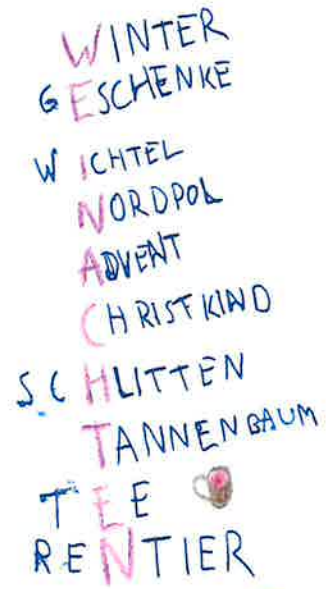 WINTER
GESCHENKE
WICHTEL
NORDPOL
ADVENT
CHRISTKIND
SCHLITTEN
TANNENBAUM
TEE
RENTIER